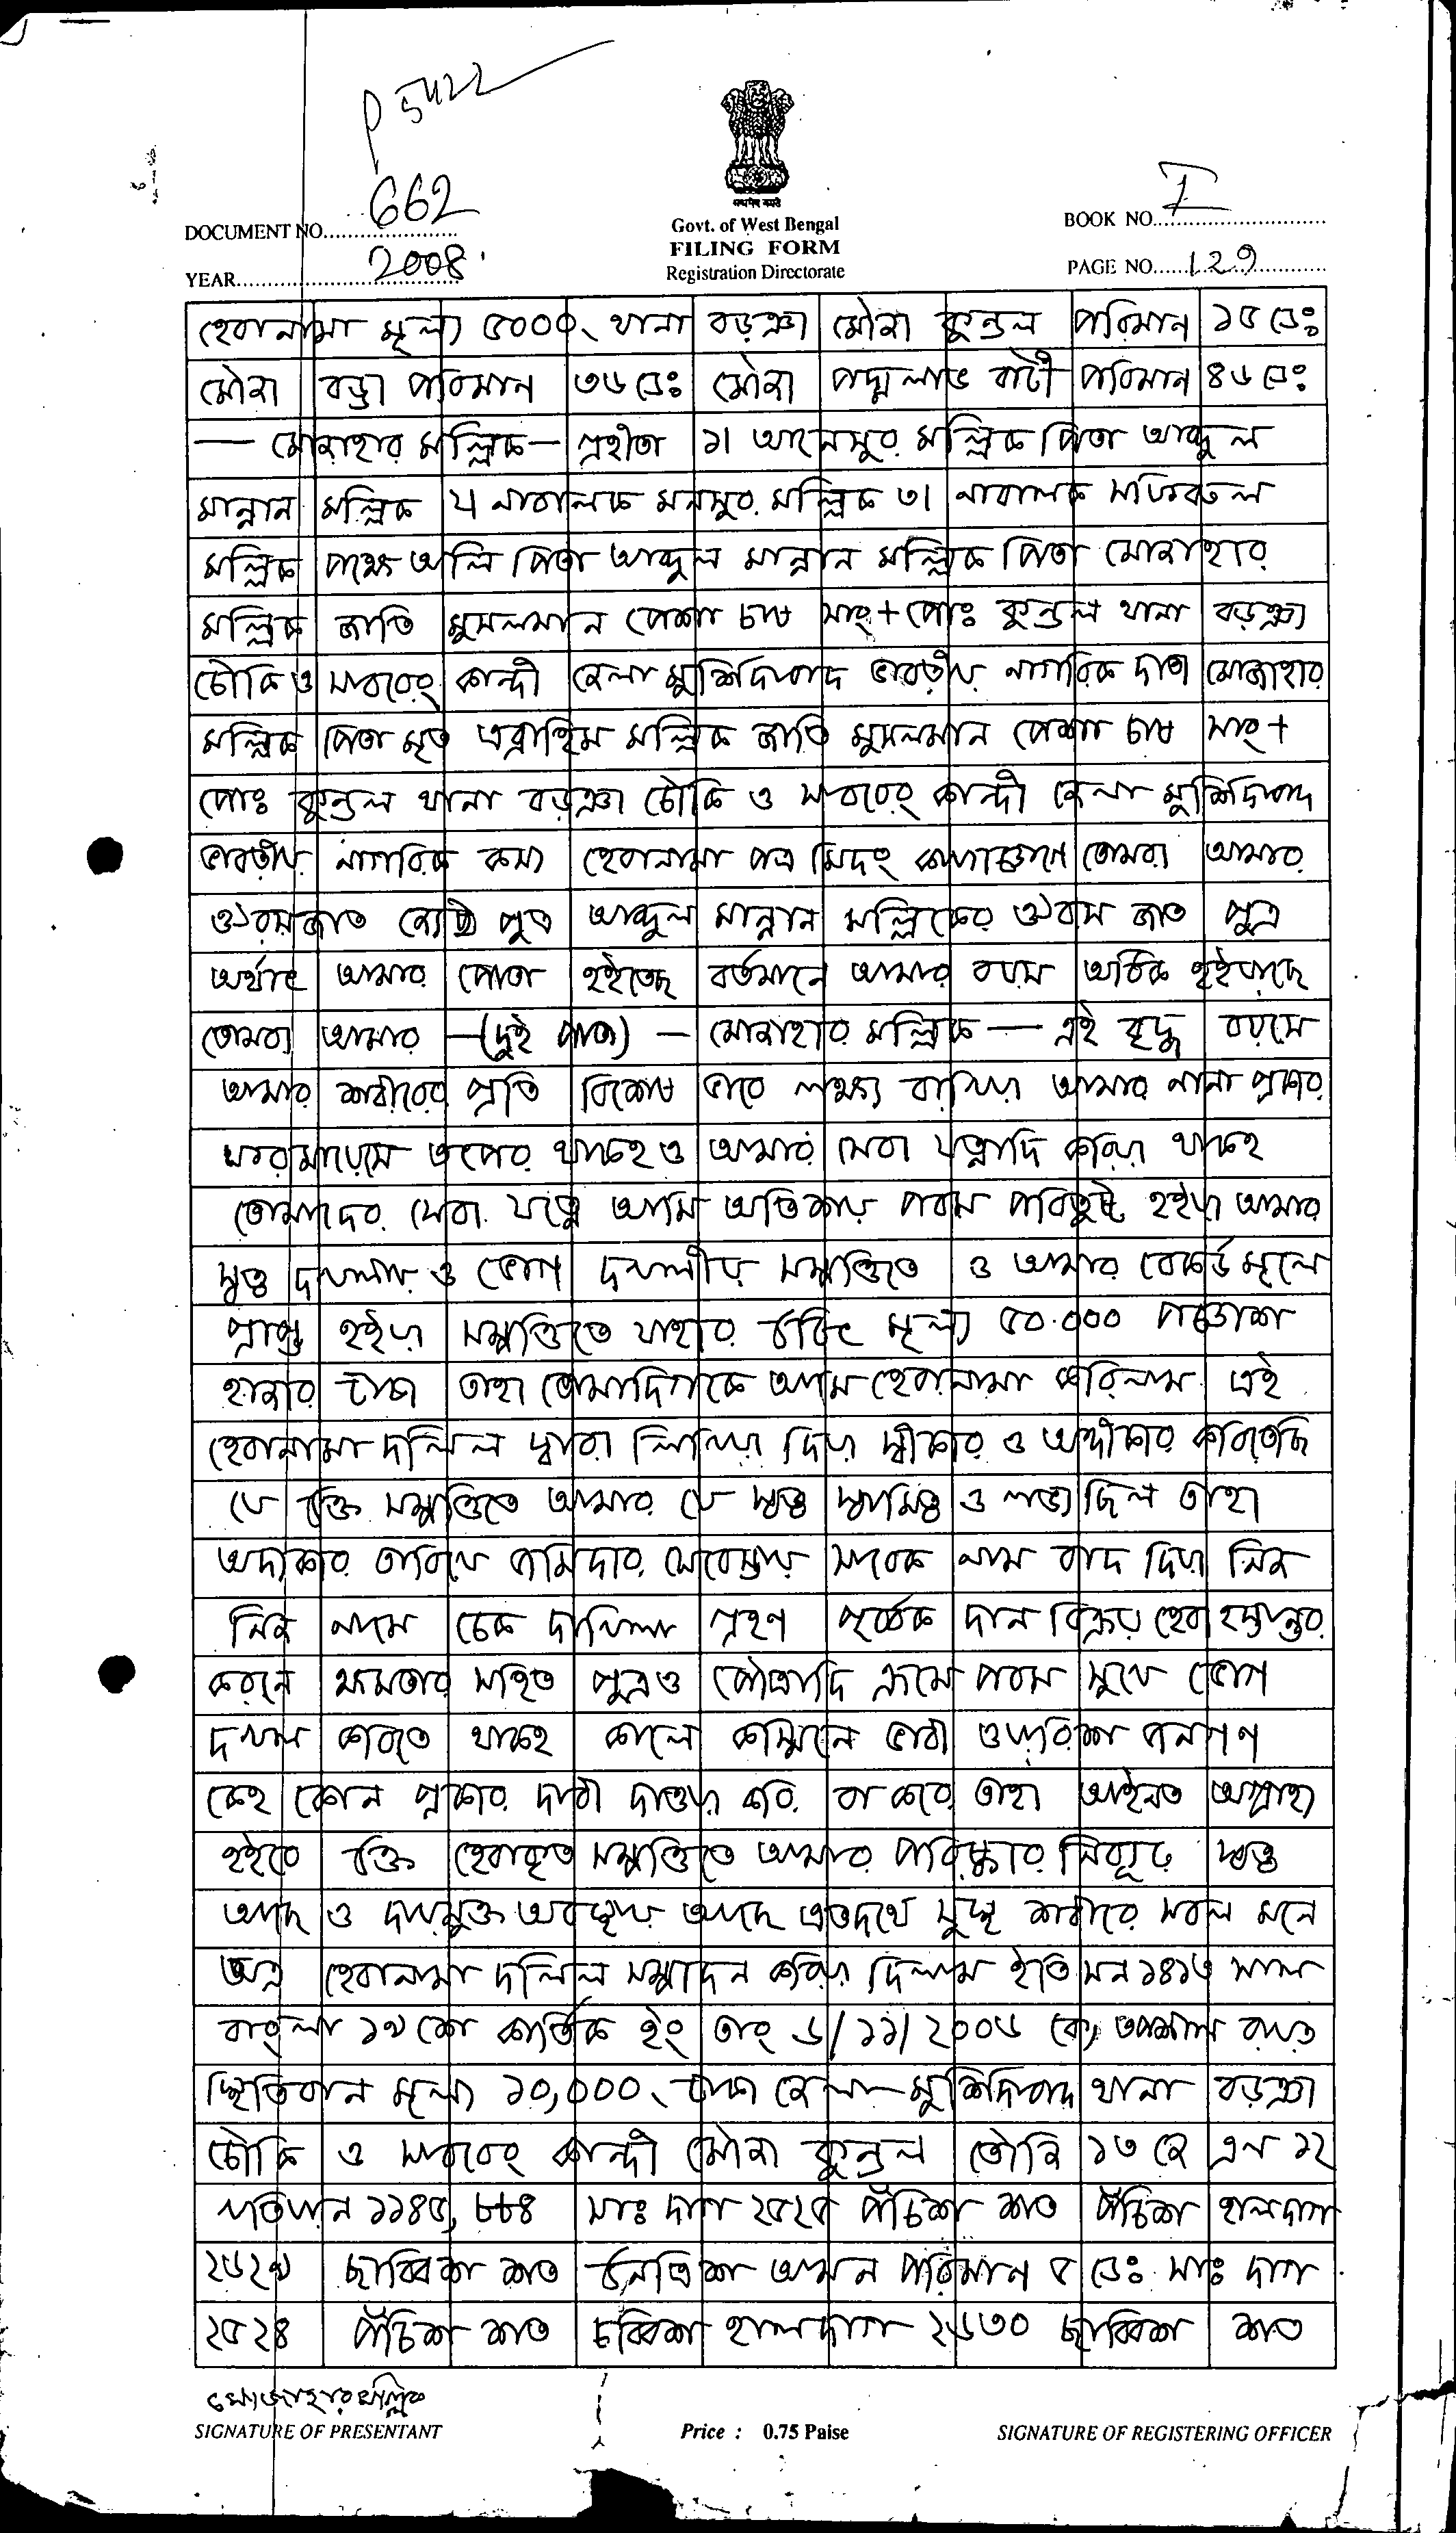 P 5422
DOCUMENT NO. 662
YEAR 2008
सत्यमेव जयते
Govt. of West Bengal
FILING FORM
Registration Directorate
BOOK NO. I
PAGE NO. 129
হেবানামা মূল্য ৫০০০০ থানা বড়ঞা মৌজা কুন্ডল পরিমান ১৫ শেঃ
মৌজা বড্ডা পরিমান ৩৬ শেঃ মৌজা পদ্মলাভ বাটী পরিমান ৪৬ শেঃ
— মোজাহার মল্লিক — গ্রহীতা ১। আনেসুর মল্লিক পিতা আব্দুল
মান্নান মল্লিক ২। নাবালক মনসুর মল্লিক ৩। নাবালক
মল্লিক পক্ষে অলি পিতা আব্দুল মান্নান মল্লিক পিতা মোজাহার
মল্লিক জাতি মুসলমান পেশা চাষ সাং + পোঃ কুন্ডল থানা বড়ঞা
চৌকি ও সবরেং কান্দী জেলা মুর্শিদাবাদ ভারতীয় নাগরিক দাতা মোজাহার
মল্লিক পিতা মৃত এব্রাহিম মল্লিক জাতি মুসলমান পেশা চাষ সাং +
পোঃ কুন্ডল থানা বড়ঞা চৌকি ও সবরেং কান্দী জেলা মুর্শিদাবাদ
ভারতীয় নাগরিক কস্য হেবানামা পত্র মিদং কার্য্যাঞ্চাগে তোমরা আমার
ঔরসজাত জ্যেষ্ঠ পুত্র আব্দুল মান্নান মল্লিকের ঔরস জাত পুত্র
অর্থাৎ আমার পোতা হইতেছ বর্তমানে আমার বয়স অধিক হইয়াছে
তোমরা আমার —(দুই পাতা) — মোজাহার মল্লিক — এই বৃদ্ধ বয়সে
আমার শরীরের প্রতি বিশেষ ভাবে লক্ষ্য রাখিয়া আমার নানা প্রকার
ফরমায়েসে তৎপর থাকহ ও আমার সেবা যত্নাদি করিয়া থাকহ
তোমাদের সেবা যত্নে আমি অতিশয় পরম পরিতুষ্ট হইয়া আমার
স্বত্ত্ব দখলীয় ও ভোগ দখলীয় সম্পত্তিতে ও আমার রেকর্ড মূলে
প্রাপ্ত হইয়া সম্পত্তিতে যাহার উচিৎ মূল্য ৫০.০০০ পঞ্চাশ
হাজার টাকা তাহা তোমাদিগকে আমি হেবানামা করিলাম এই
হেবানামা দলিল দ্বারা লিখিয়া দিয়া স্বীকার ও অঙ্গীকার করিতেছি
যে উক্ত সম্পত্তিতে আমার যে স্বত্ত্ব স্বামিত্ব ও লভ্য ছিল তাহা
অদ্যকার তারিখে জমিদার সেরেস্তায় সাবেক নাম বাদ দিয়া নিজ
নিজ নামে চেক দাখিলা গ্রহণ পূর্ব্বক দান বিক্রয় হেবা হস্তান্তর
করনে ক্ষমতার সহিত পুত্র ও পৌত্রাদি ক্রমে পরম সুখে ভোগ
দখল করিতে থাকহ কালে কস্মিনে ভাবী ওয়ারিশা গনগণ
কেহ কোন প্রকার দাবী দাওয়া করি বা করে তাহা আইনত অগ্রাহ্য
হইবে উক্ত হেবাকৃত সম্পত্তিতে আমার পরিষ্কার নির্ব্যূঢ় স্বত্ত্ব
আছে ও দায়মুক্ত অবস্থায় আছে এতদর্থে সুস্থ শরীরে সরল মনে
অত্র হেবানামা দলিল সম্পাদন করিয়া দিলাম ইতি সন ১৪১৩ সাল
বাংলা ১৯ শে কার্ত্তিক ইং তাং ৬/১১/২০০৬ (ক) তপশীল রায়ত
স্থিতিবান মূল্য ১০,০০০ টাকা জেলা মুর্শিদাবাদ থানা বড়ঞা
চৌকি ও সবরেং কান্দী মৌজা কুন্ডল তৌজি ১৩ জে এল ১২
খতিয়ান ১১৪৫, ৮৮৪ সাঃ দাগ ২৫২৫ পঁচিশ শত পঁচিশ হালদাগ
২৬২৯ ছাব্বিশ শত উনত্রিশ আমন পরিমান ৫ শেঃ সাঃ দাগ
২৫২৪ পঁচিশ শত চব্বিশ হালদাগ ২৬৩০ ছাব্বিশ শত
মোজাহার মল্লিক
SIGNATURE OF PRESENTANT
Price : 0.75 Paise
SIGNATURE OF REGISTERING OFFICER